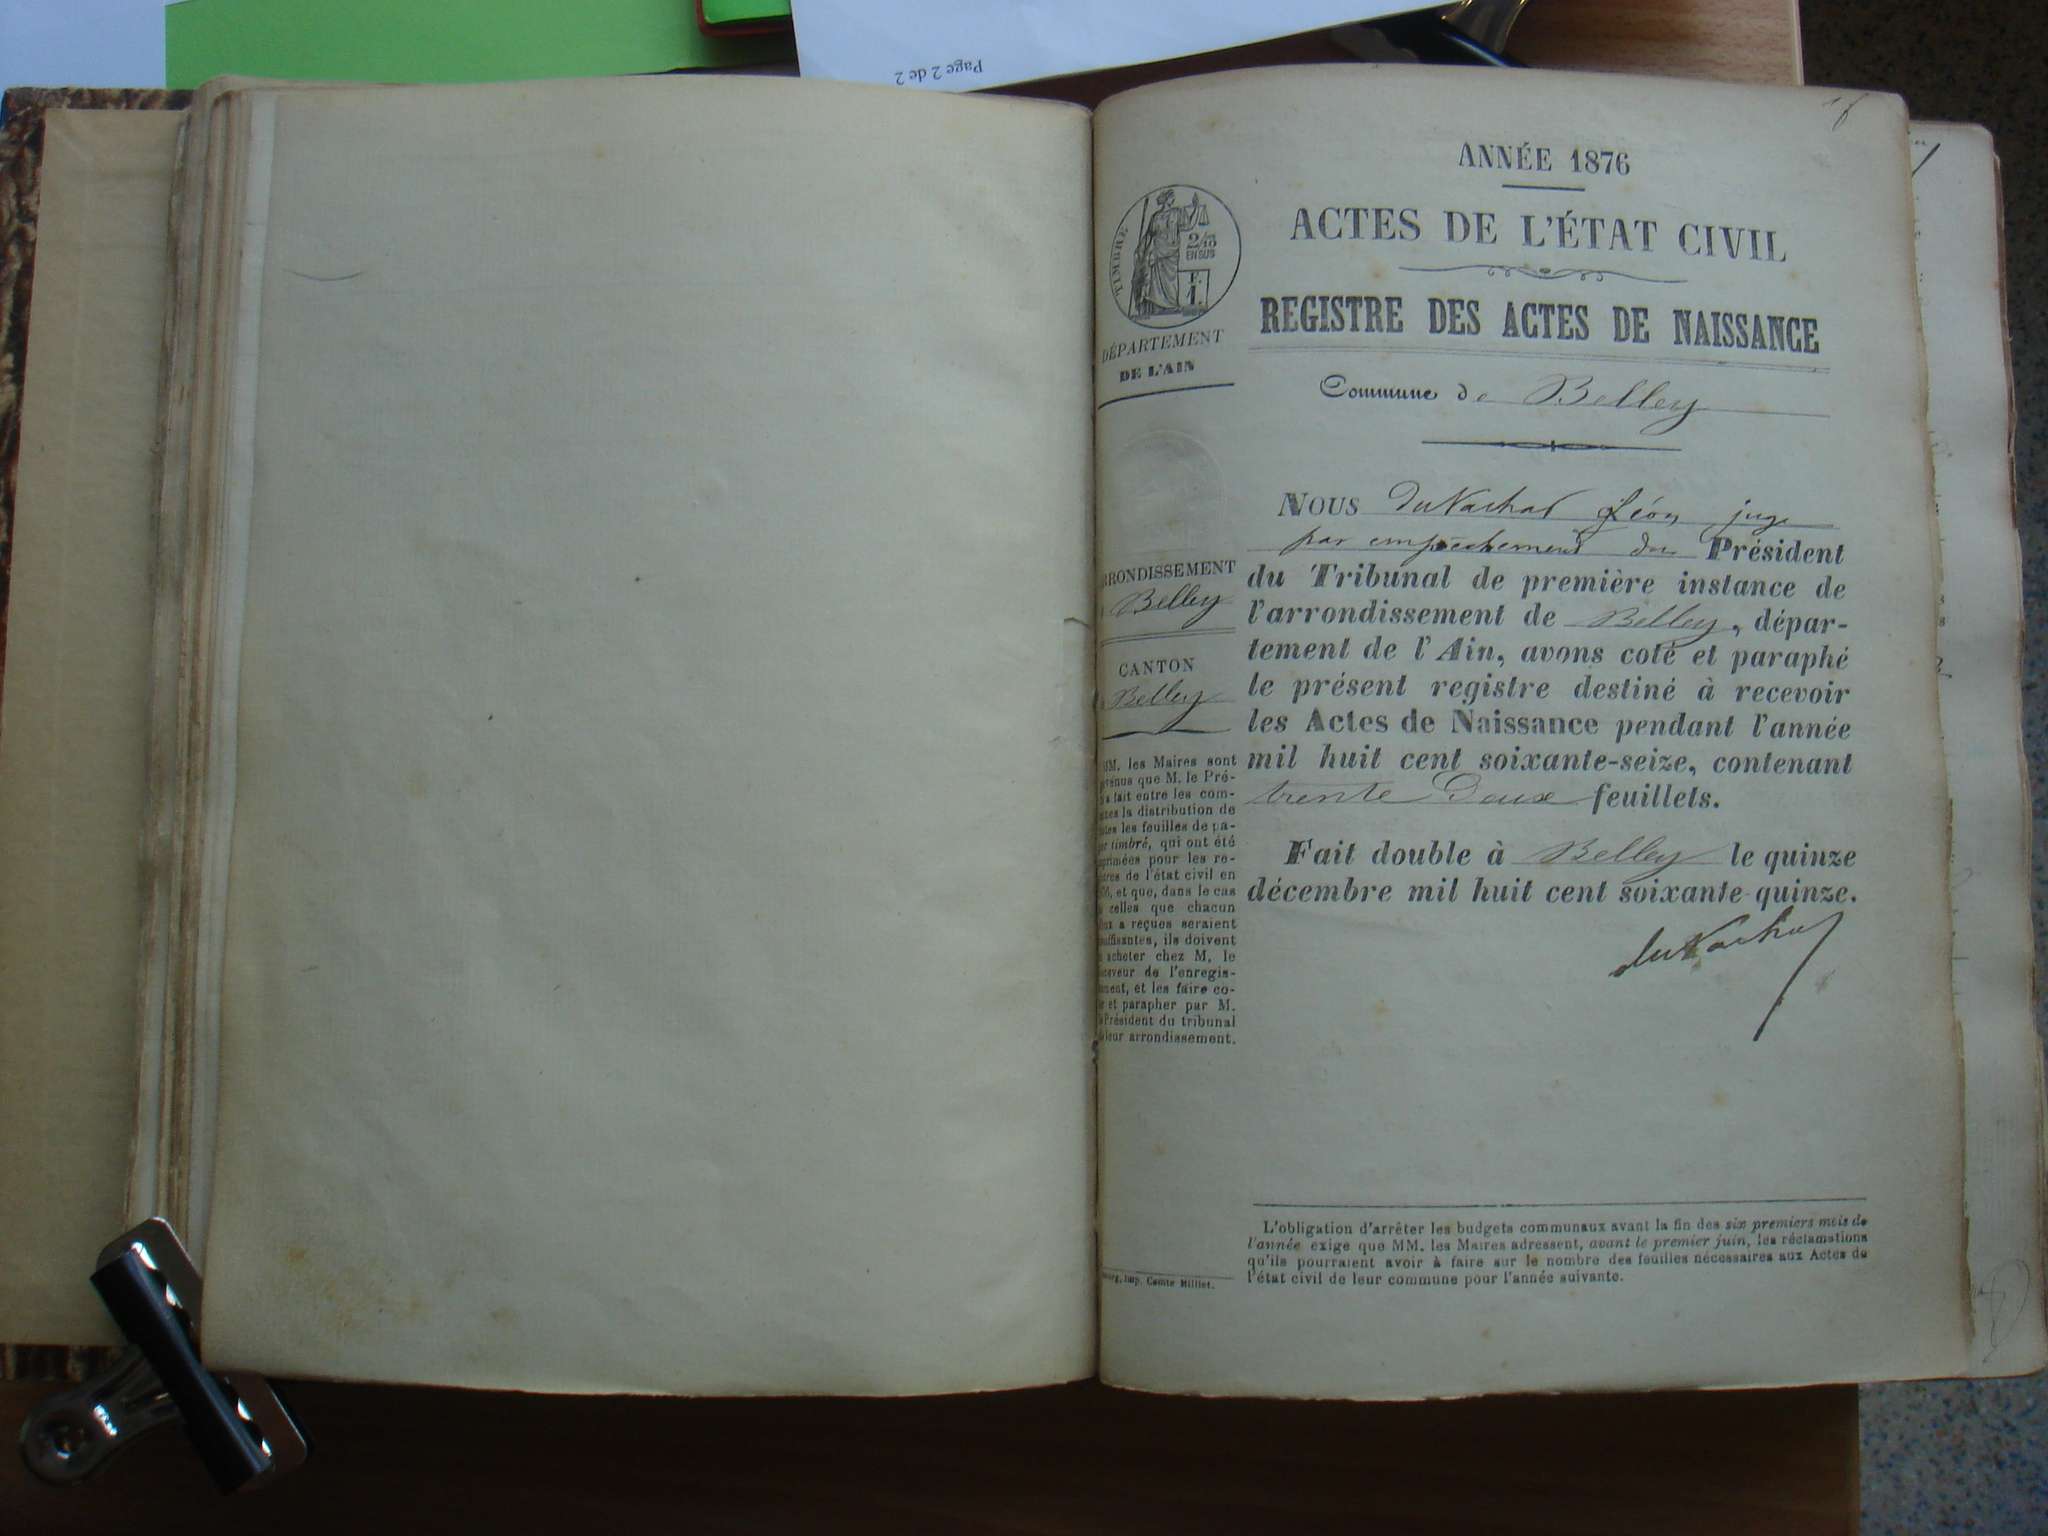 Page 2 de 2
ANNÉE 1876
ACTES DE L'ÉTAT CIVIL
REGISTRE DES ACTES DE NAISSANCE
Commune de Belley
TIMBRE
2/10
EN SUS
F.
1.
DÉPARTEMENT
DE L'AIN
ARRONDISSEMENT
Belley
CANTON
Belley
MM. les Maires sont
prévenus que M. le Pré-
fait entre les com-
munes la distribution de
toutes les feuilles de pa-
pier timbré, qui ont été
imprimées pour les re-
gistres de l'état civil en
et que, dans le cas
celles que chacun
d'eux a reçues seraient
insuffisantes, ils doivent
acheter chez M. le
receveur de l'enregis-
trement, et les faire co-
ter et parapher par M.
le Président du tribunal
de leur arrondissement.
Bourg, imp. Comte Milliet.
NOUS duNachat Léon juge
par empêchement du Président
du Tribunal de première instance de
l'arrondissement de Belley, dépar-
tement de l'Ain, avons coté et paraphé
le présent registre destiné à recevoir
les Actes de Naissance pendant l'année
mil huit cent soixante-seize, contenant
trente Deux feuillets.
Fait double à Belley le quinze
décembre mil huit cent soixante-quinze.
duNachat
L'obligation d'arrêter les budgets communaux avant la fin des six premiers mois de
l'année exige que MM. les Maires adressent, avant le premier juin, les réclamations
qu'ils pourraient avoir à faire sur le nombre des feuilles nécessaires aux Actes de
l'état civil de leur commune pour l'année suivante.